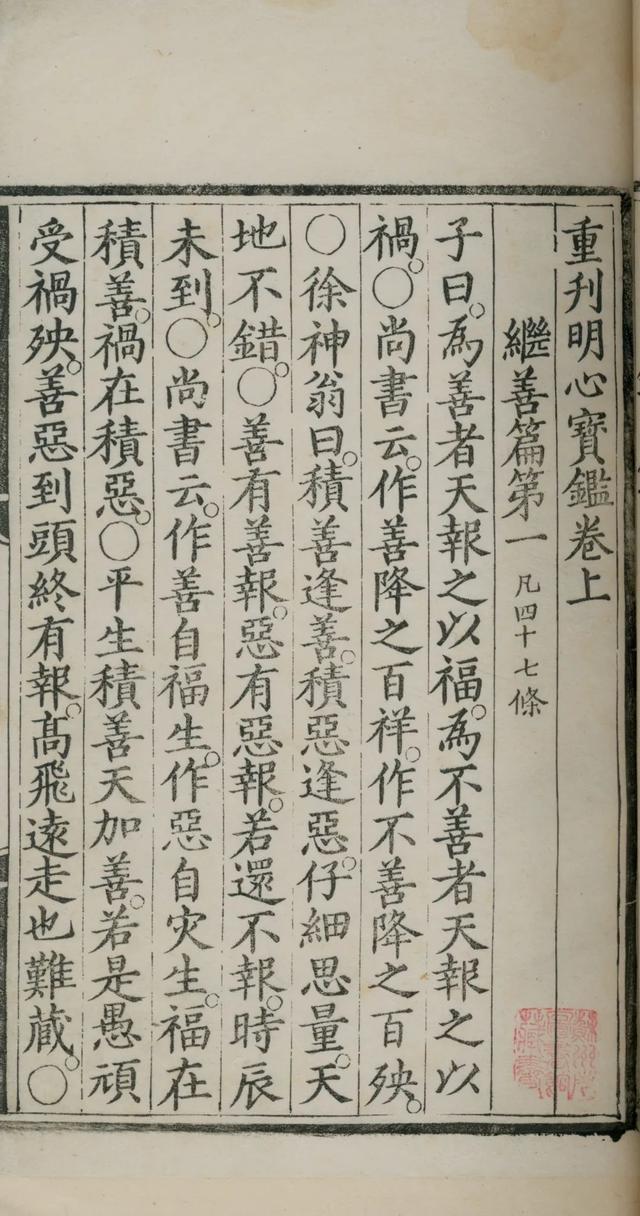 重刊明心寶鑑卷上
繼善篇第一 凡四十七條
子曰。為善者天報之以福。為不善者天報之以
禍。〇尚書云。作善降之百祥。作不善降之百殃。
〇徐神翁曰。積善逢善。積惡逢惡。仔細思量。天
地不錯。〇善有善報。惡有惡報。若還不報。時辰
未到。〇尚書云。作善自福生。作惡自灾生。福在
積善。禍在積惡。〇平生積善天加善。若是愚頑
受禍殃。善惡到頭終有報。髙飛遠走也難藏。〇